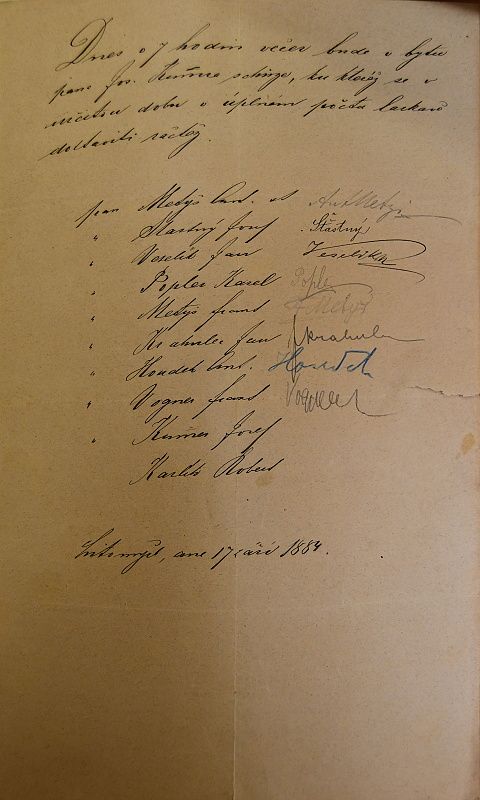 Dnes o 7 hodin večer bude v bytu
pana Jos. schůze, ku kteréž se v
určitou dobu v úplném počtu laskavě
dostaviti račtež.
pan Metyš Ant. Ant Metyš
" Štastný Josef Štastný
" Veselík Jan Veselík
" Popler Karel Popler
" Metyš Frant F Metyš
" Krahulec Jan Krahulec
" Houdek Ant. Houdek
" Vogner Frant Vogner
" Josef
Karlík Robert
Litomyšl, dne 17 září 1884.